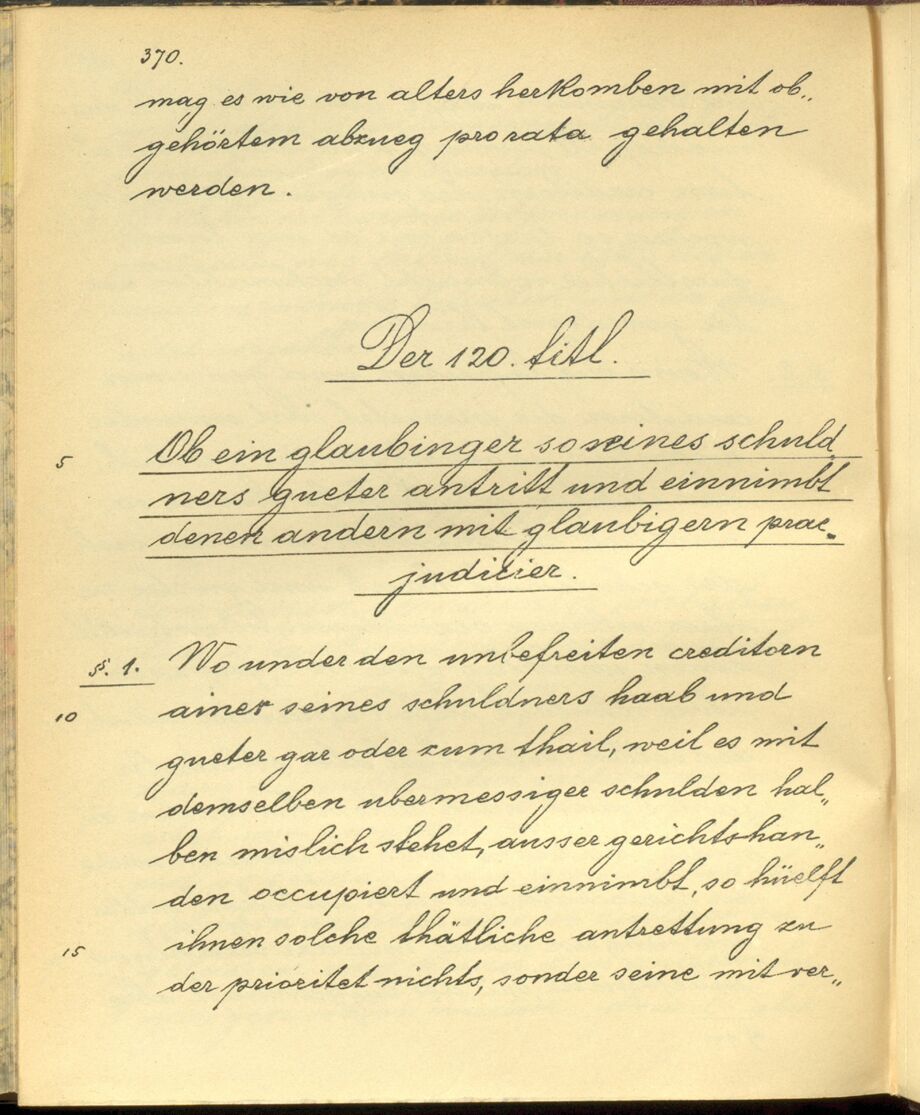 370.
mag es wie von alters herkomben mit ob„
gehörtem abzueg pro rata gehalten
werden.
Der 120. titl.
5 Ob ein glaubinger so seines schuld„
ners gueter antritt und einnimbt
denen andern mit glaubigern prae„
judicier.
§. 1. Wo under den unbefreiten creditorn
10 ainer seines schuldners haab und
gueter gar oder zum thail, weil es mit
demselben ubermessiger schulden hal„
ben mislich stehet, ausser gerichts han„
den occupiert und einnimbt, so hüelft
15 ihnen solche thätliche antrettung zu
der prioritet nichts, sonder seine mit ver„